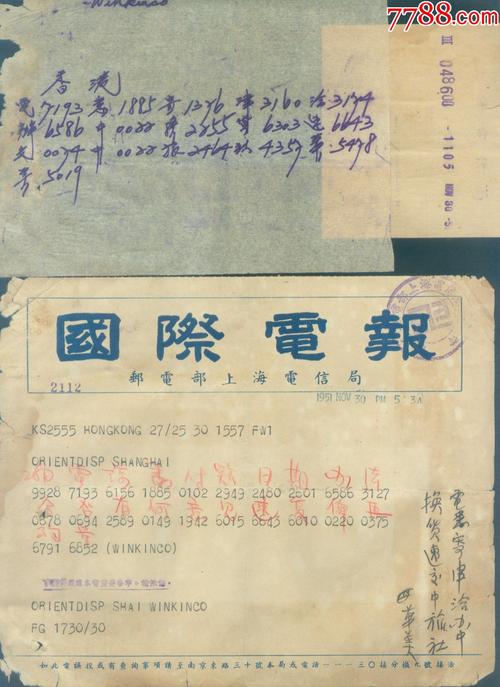 7788.com
-Winkinco
香港
電7193為1885 1376津3160洽3174
辦6586中0022 2255 6303速6643
交0074中0022旅2464社4357華5478
5019
III 048600 -1105 NOV 30-5
國際電報
郵電部上海電信局
2112
1951 NOV 30 PM 5
KS2555 HONGKONG 27/25 30 1557 FW1
ORIENTDISP SHANGHAI
28日電 付款日期
9928 7193 6156 1885 0102 2949 2480 2601 6586 3127
0878 0694 2589 0149 1942 6015 6643 6010 0220 0375
6791 6852 (WINKINCO)
ORIENTDISP SHAI WINKINCO
FG 1730/30
電悉 津洽办中
換貨速交中旅社
華
如此電誤投或有查詢事項請至南京東路三十號本局或電話一一一三〇接分機九號接洽